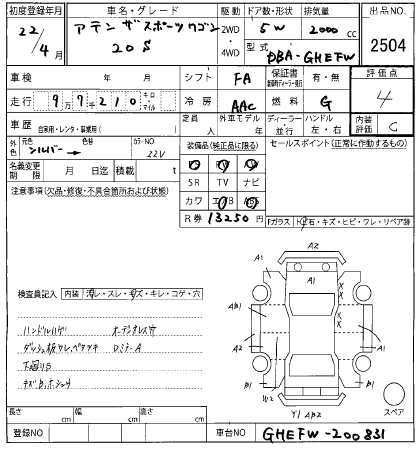 初度登録年月 車名・グレード 駆動 ドア数・形状 排気量 出品NO.
22/4月 アテンザスポーツワゴン 2WD 5W 2000cc 2504
20S ・4WD 型式 DBA-GHEFW
車検 年 月 シフト FA 保証書 有・無 評価点
走行 9万7千210 キロ・マイル 冷房 AAC 燃料 G 4
車歴 自家用・レンタ・事業用( ) 定員 人 外車モデル 年 ディーラー・並行 ハンドル 左・右 内装評価 C
外色 元色 シルバー → 色替 カラーNO 22V 装備品(純正品に限る) セールスポイント(正常に作動するもの)
名義変更期限 月 日 積載 t
SR TV ナビ
注意事項(欠品・修復・不具合箇所および状態) カワ
R券 13250円 Fガラス トビ石・キズ・ヒビ・ワレ・リペア跡
検査員記入 内装 汚レ・スレ・キズ・キレ・コゲ・穴
ハンドルハゲ オーデオレス穴
ダッシュ板ワレ、ベタツキ
下廻りS
A2
A1 A1
A1
A2 A1
B1 W2 B1
スペア
長さ cm 幅 cm 高さ cm
登録NO 車台NO GHEFW-200831